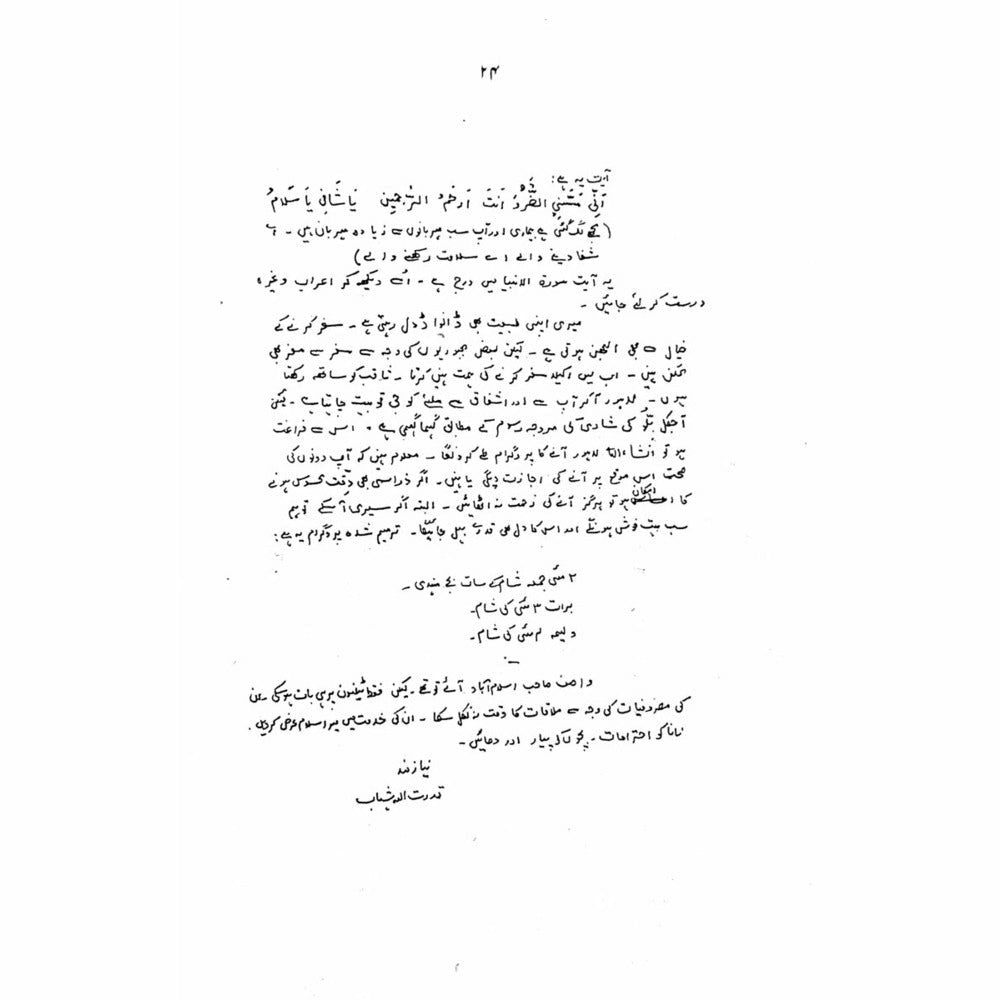 ۲۴
آیت یہ ہے:
اَنِّی مَسَّنِیَ الضُّرُّ وَ اَنتَ اَرحَمُ الرّٰحِمِین یَا شَافِی یَا سَلَامُ
(مجھے لگ گئی ہے بیماری اور آپ سب مہربانوں سے زیادہ مہربان ہیں ۔ اے
شفا دینے والے اے سلامت رکھنے والے)
یہ آیت سورۃ الانبیا میں درج ہے ۔ اُسے دیکھ کر اعراب وغیرہ
درست کر لئے جائیں ۔
میری اپنی طبیعت بھی ڈانوا ڈول رہتی ہے ۔ سفر کرنے کے
خیال سے بھی الجھن ہوتی ہے ۔ لیکن بعض مجبوریوں کی وجہ سے سفر سے مفر بھی
ممکن نہیں ۔ اب میں اکیلا سفر کرنے کی ہمت نہیں کرتا ۔ ثاقب کو ساتھ رکھتا
ہوں ۔ لاہور آ کر آپ سے اور اشفاق سے ملنے کو جی تو بہت چاہتا ہے ۔ لیکن
آجکل کی شادی کی مروجہ رسوم کے مطابق گہما گہمی ہے ۔ اس سے فراغت
ہو تو انشاءاللہ لاہور آنے کا پروگرام طے کرونگا ۔ معلوم نہیں کہ آپ دونوں کی
صحت اس موقع پر آنے کی اجازت دیگی یا نہیں ۔ اگر ذرا سی بھی دِقّت محسوس ہونے
کا امکان ہو تو ہرگز آنے کی زحمت نہ اٹھائیں ۔ البتہ اگر سیری آ سکے تو ہم
سب بہت خوش ہونگے اور اس کا دل بھی قدرے بہل جائیگا ۔ ترمیم شدہ پروگرام یہ ہے:
۲ مئی جمعہ شام کے سات بجے مہندی ۔
برات ۳ مئی کی شام ۔
ولیمہ ۴ مئی کی شام ۔
واصف صاحب اسلام آباد آئے تو تھے ۔ لیکن فقط ٹیلیفون پر ہی بات ہو سکی ۔ ان
کی مصروفیات کی وجہ سے ملاقات کا وقت نہ نکل سکا ۔ ان کی خدمت میں میرا سلام عرض کر دیں ۔
نانا کو احترامات ۔ بچوں کو پیار اور دعائیں ۔
نیازمند
قدرت اللہ شہاب